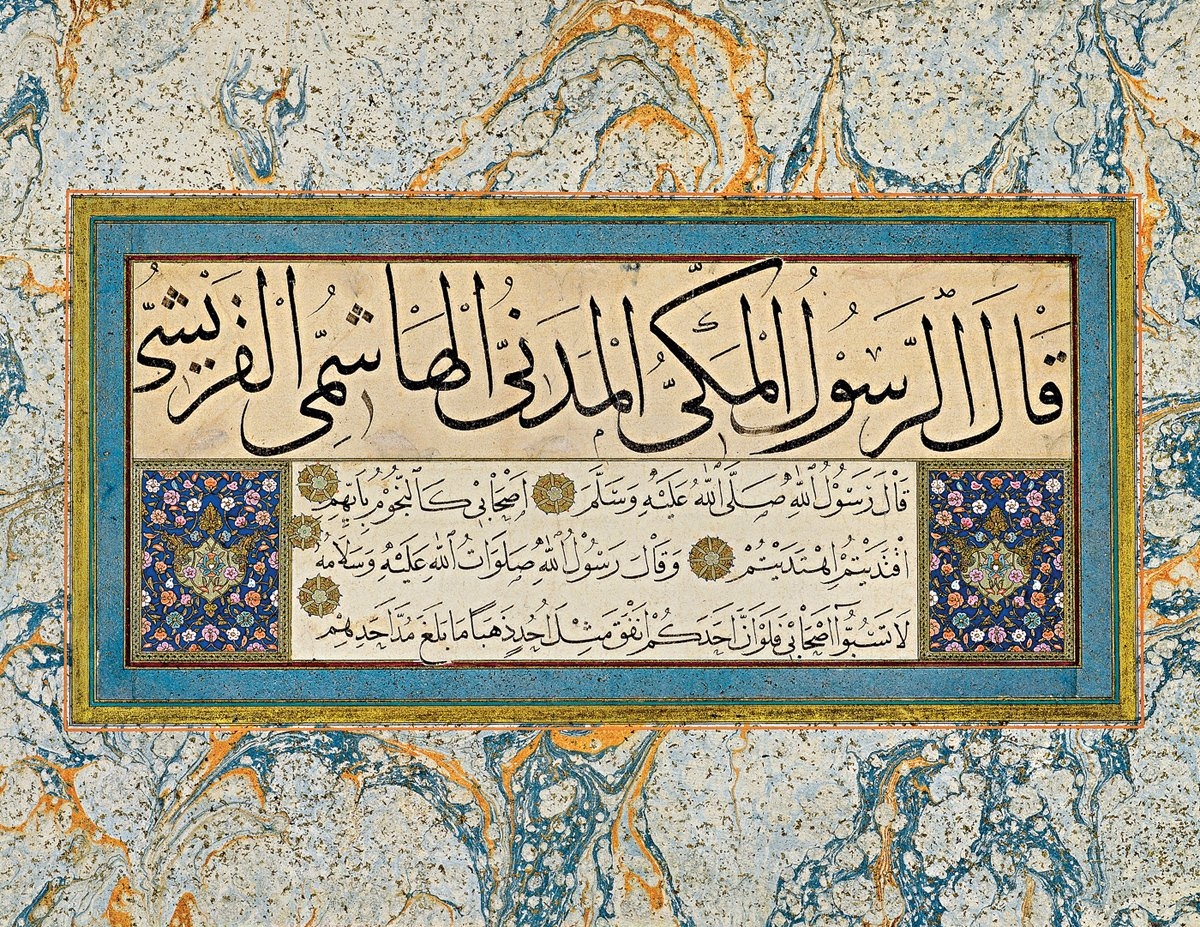 قَالَ الرَّسُولُ الْمَكِّيُّ الْمَدَنِيُّ الْهَاشِمِيُّ الْقُرَيْشِيُّ
قَالَ رَسُولُ اللهِ صَلَّى اللهُ عَلَيْهِ وَسَلَّمَ اَصْحَابِي كَالنُّجُومِ بِاَيِّهِمُ
اقْتَدَيْتُمُ اهْتَدَيْتُمْ وَقَالَ رَسُولُ اللهِ صَلَوَاتُ اللهِ عَلَيْهِ وَسَلَامُهُ
لَا تَسُبُّوا اَصْحَابِي فَلَوْ اَنَّ اَحَدَكُمْ اَنْفَقَ مِثْلَ اُحُدٍ ذَهَبًا مَا بَلَغَ مُدَّ اَحَدِهِمْ